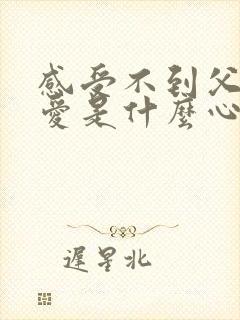 感受不到父
愛是什麼心
遲星北